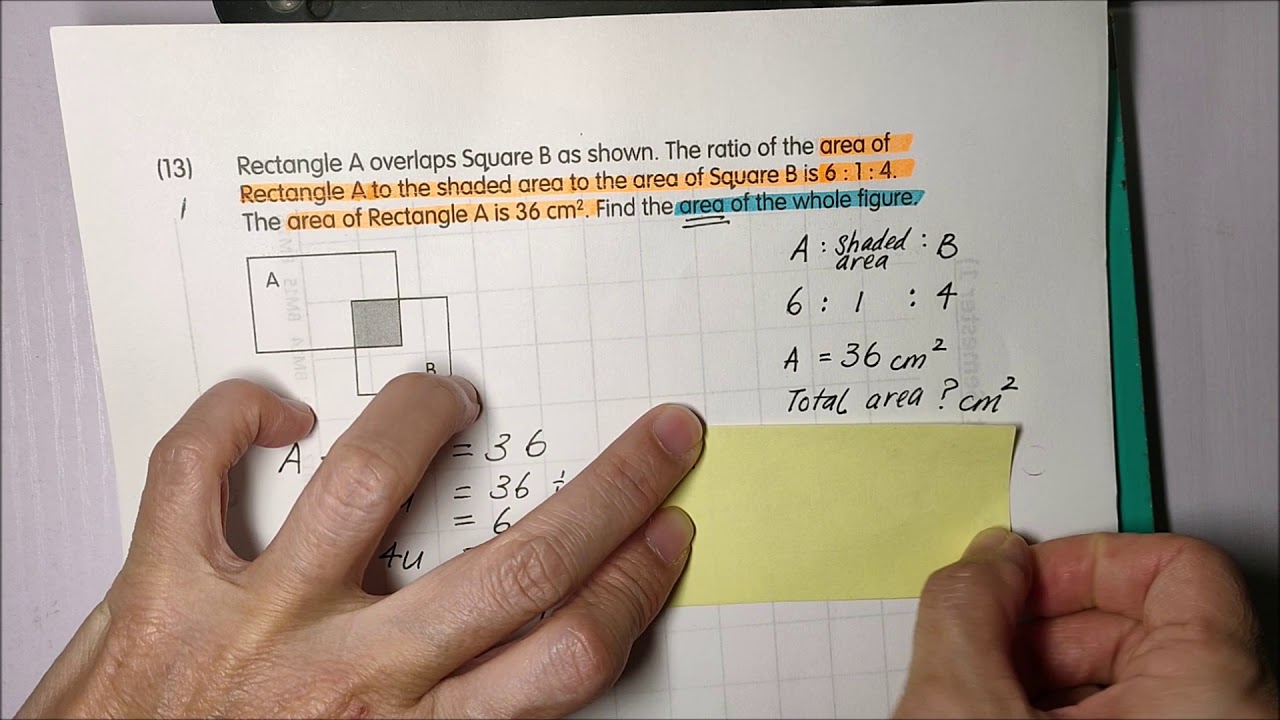 (13) Rectangle A overlaps Square B as shown. The ratio of the area of
Rectangle A to the shaded area to the area of Square B is 6 : 1 : 4.
The area of Rectangle A is 36 cm². Find the area of the whole figure.
A
B
A : shaded area : B
6 : 1 : 4
A = 36 cm²
Total area ? cm²
A = 36
= 36 ÷
= 6
4u